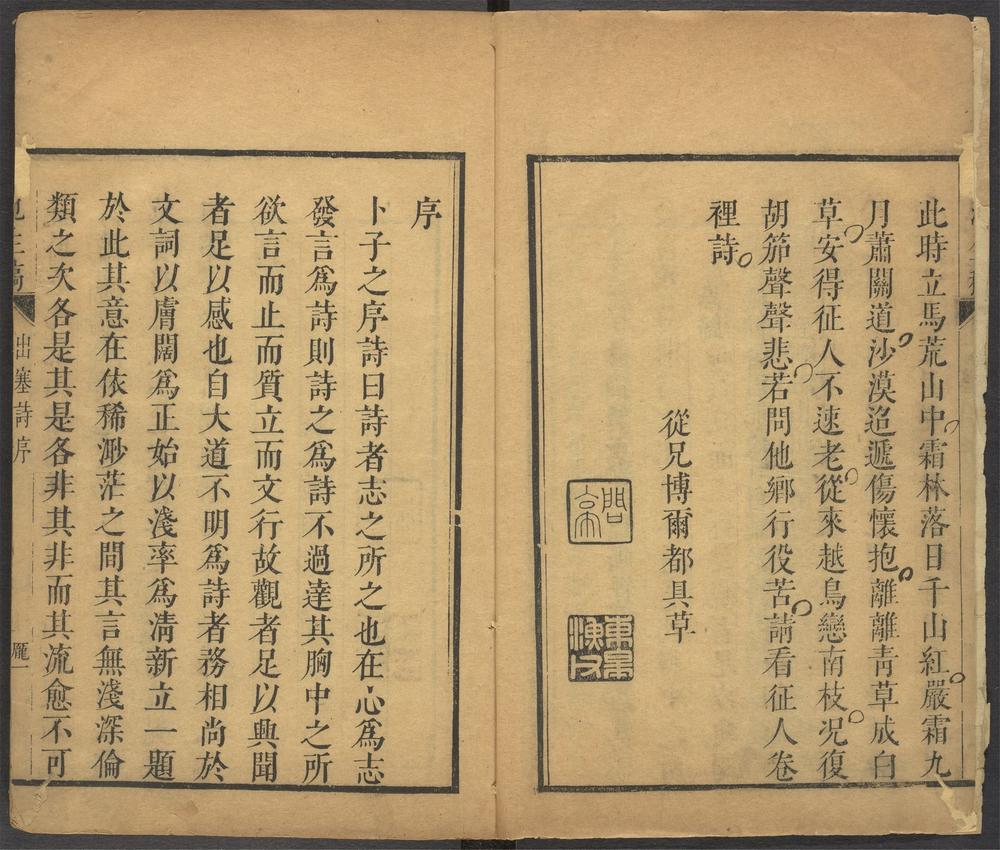 此時立馬荒山中霜林落日千山紅嚴霜九
月蕭關道沙漠迢遞傷懷抱離離靑草成白
草安得征人不速老從來越鳥戀南枝況復
胡笳聲聲悲若問他鄉行役苦請看征人卷
裡詩
從兄博爾都具草
問亭
東皋漁父
序
卜子之序詩曰詩者志之所之也在心爲志
發言爲詩則詩之爲詩不過達其胸中之所
欲言而止而質立而文行故觀者足以興聞
者足以感也自大道不明爲詩者務相尚於
文詞以膚闊爲正始以淺率爲淸新立一題
於此其意在依稀渺茫之間其言無淺深倫
類之次各是其是各非其非而其流愈不可
出塞詩序
龎一